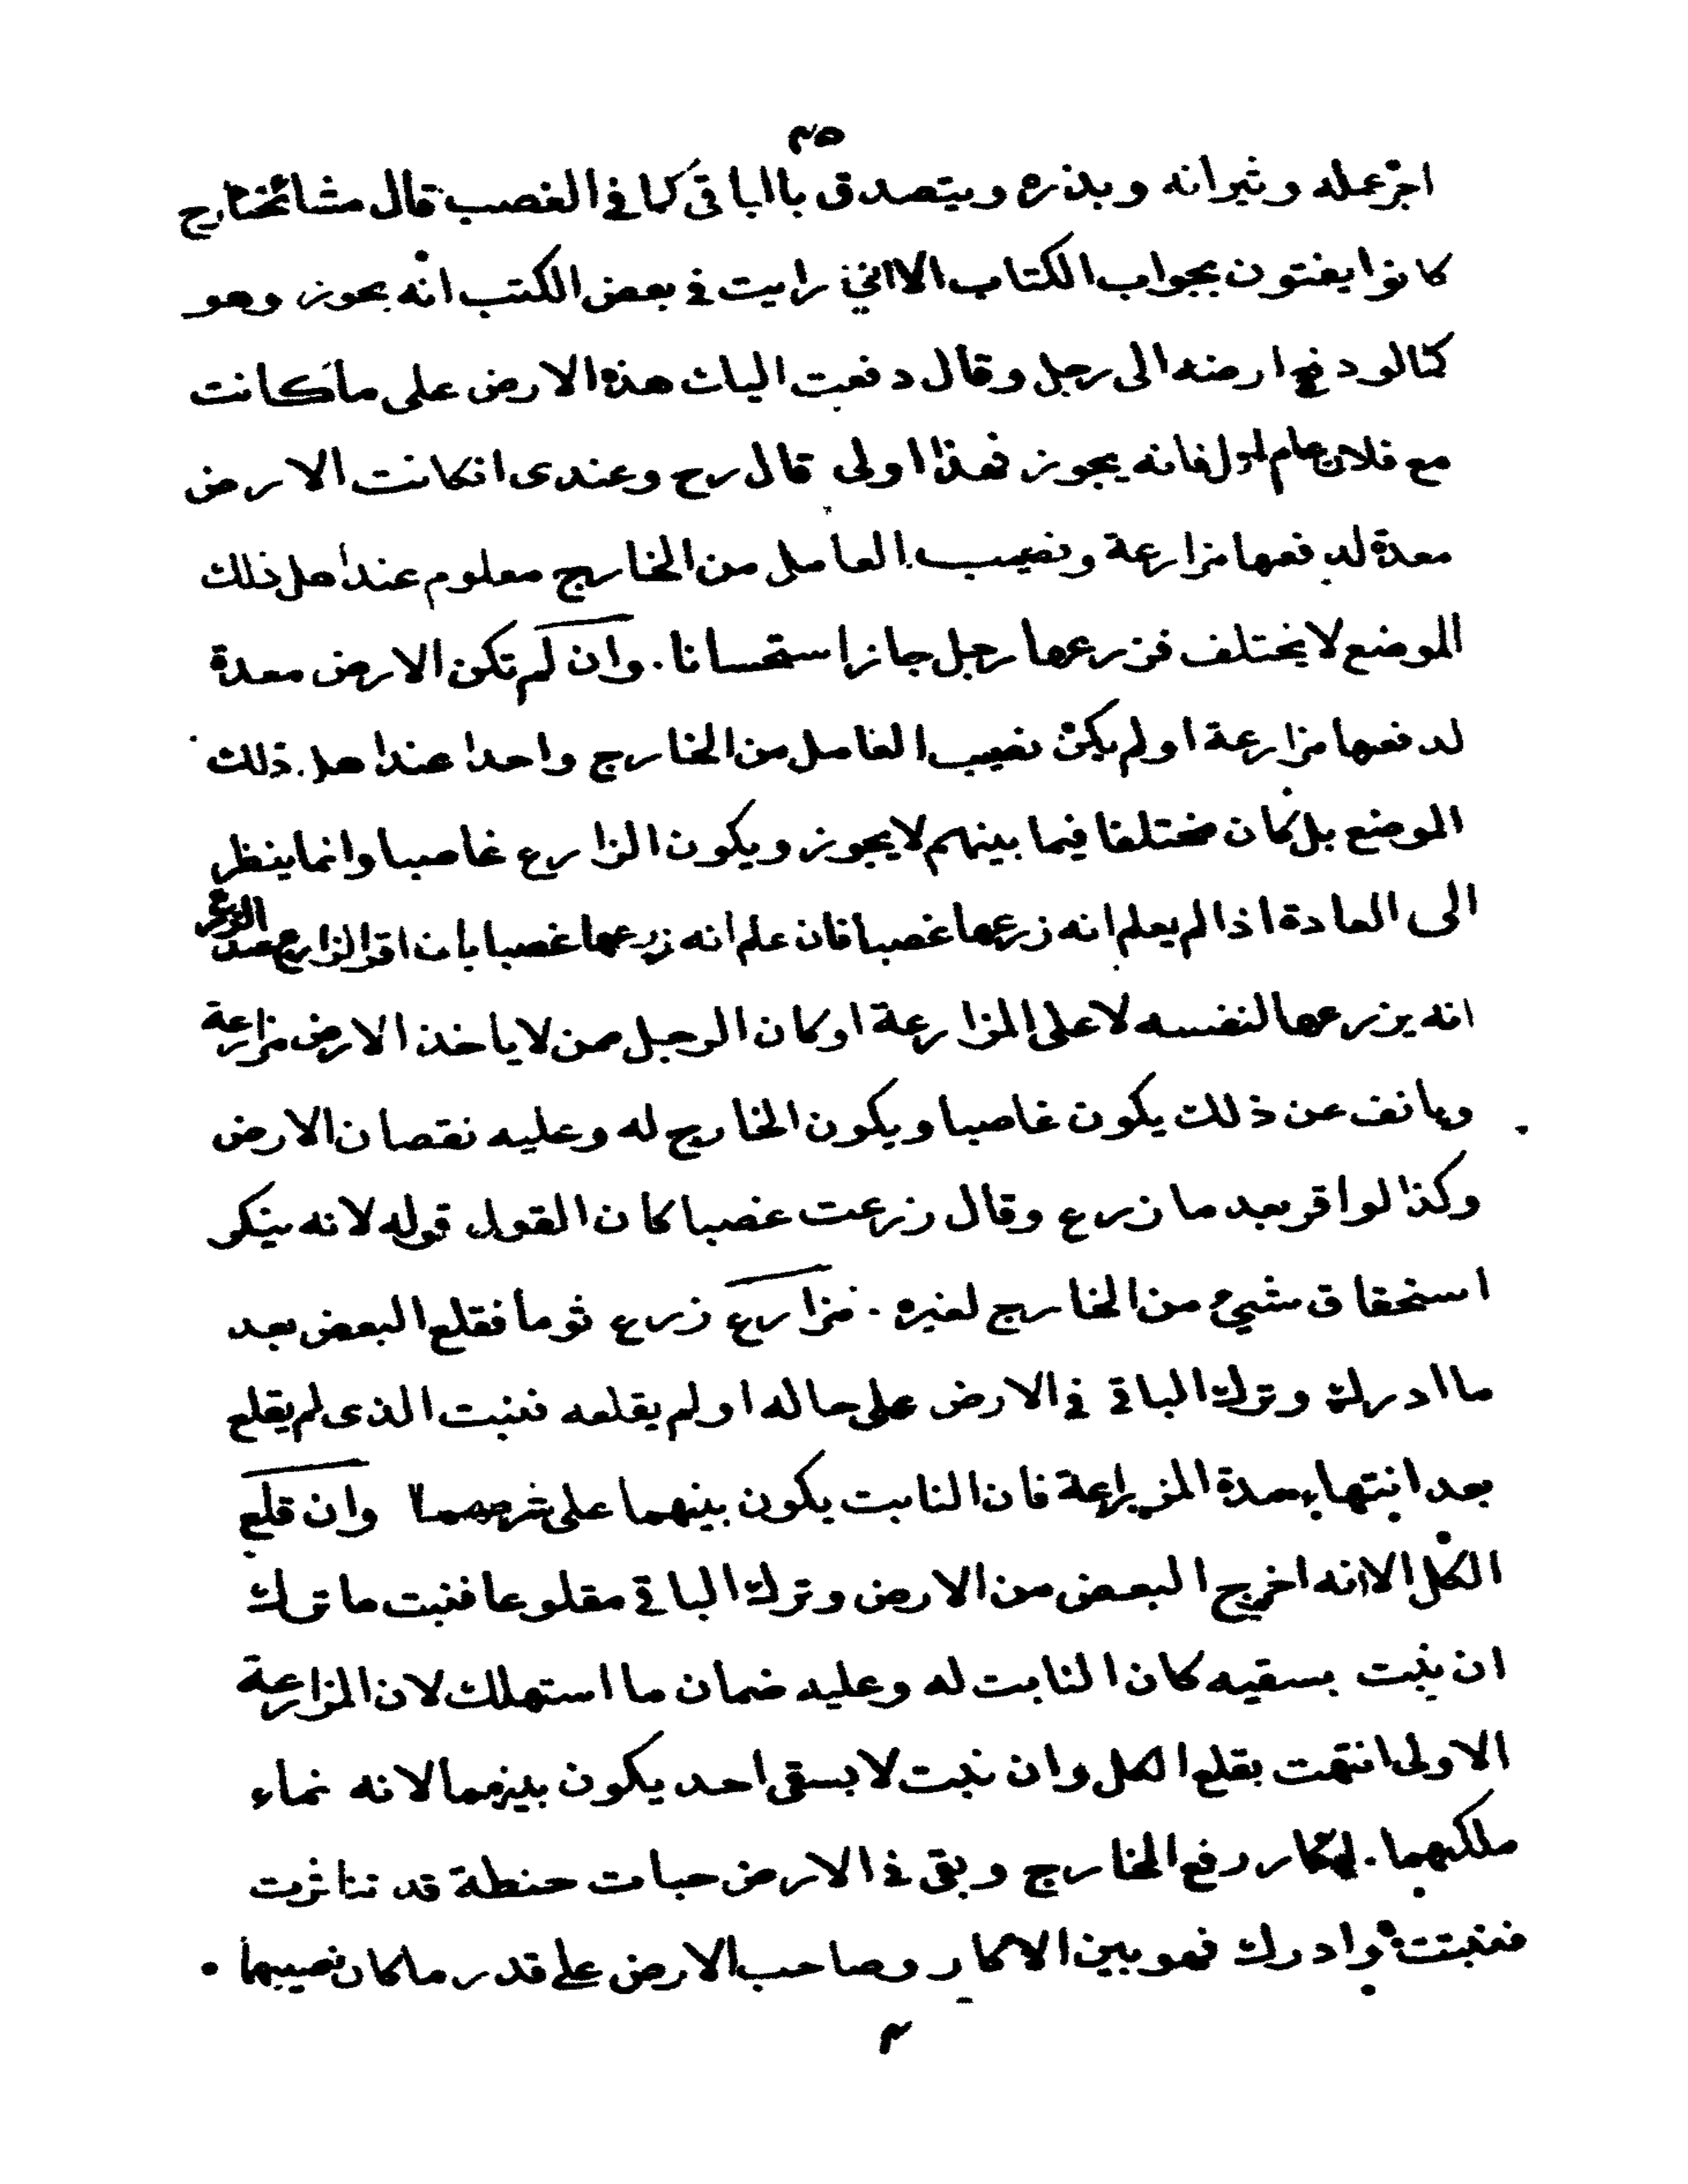 ٣٥
اجر عمله وثيرانه وبذره ويتصدق باالباقى كما فى الغصب قال مشائخنا رح
كانوا يفتون بجواب الكتاب الا انى رايت فى بعض الكتب انه يجوز وهو
كما لو دفع ارضه الى رجل وقال دفعت اليك هذه الارض على ما كانت
مع فلان عام اول فانه يجوز فهذا اولى قال رح وعندى ان كانت الارض
معدة لدفعها مزارعة ونصيب العامل من الخارج معلوم عند اهل ذلك
الموضع لا يختلف فزرعها رجل جاز استحسانا. وان لم تكن الارض معدة
لدفعها مزارعة او لم يكن نصيب العامل من الخارج واحدا عند اهل ذلك
الموضع بل كان مختلفا فيما بينهم لا يجوز ويكون الزارع غاصبا وانما ينظر
الى العادة اذا لم يعلم انه زرعها غصبا فان علم انه زرعها غصبا بان اقر الزارع عند الزرع
انه يزرعها لنفسه لا على المزارعة او كان الرجل ممن لا ياخذ الارض مزارعة
ويانف عن ذلك يكون غاصبا ويكون الخارج له وعليه نقصان الارض
وكذا لو اقر بعد ما زرع وقال زرعت غصبا كان القول قوله لانه ينكر
استحقاق شيئ من الخارج لغيره. مزارع زرع ثوما فقلع البعض بعد
ما ادرك وترك الباقى فى الارض على حاله او لم يقلعه فنبت الذى لم يقلع
بعد انتهاء مدة المزارعة فان النابت يكون بينهما على شرطهما وان قلع
الكل الا انه اخرج البعض من الارض وترك الباقى مقلوعا فنبت ما ترك
ان نبت بسقيه كان النابت له وعليه ضمان ما استهلك لان المزارعة
الاولى انتهت بقلع الكل وان نبت لا بسقى احد يكون بينهما لانه نماء
ملكهما. اكار رفع الخارج وبقى فى الارض حبات حنطة قد تناثرت
فنبتت وادرك فهو بين الاكار وصاحب الارض على قدر ما كان نصيبهما .